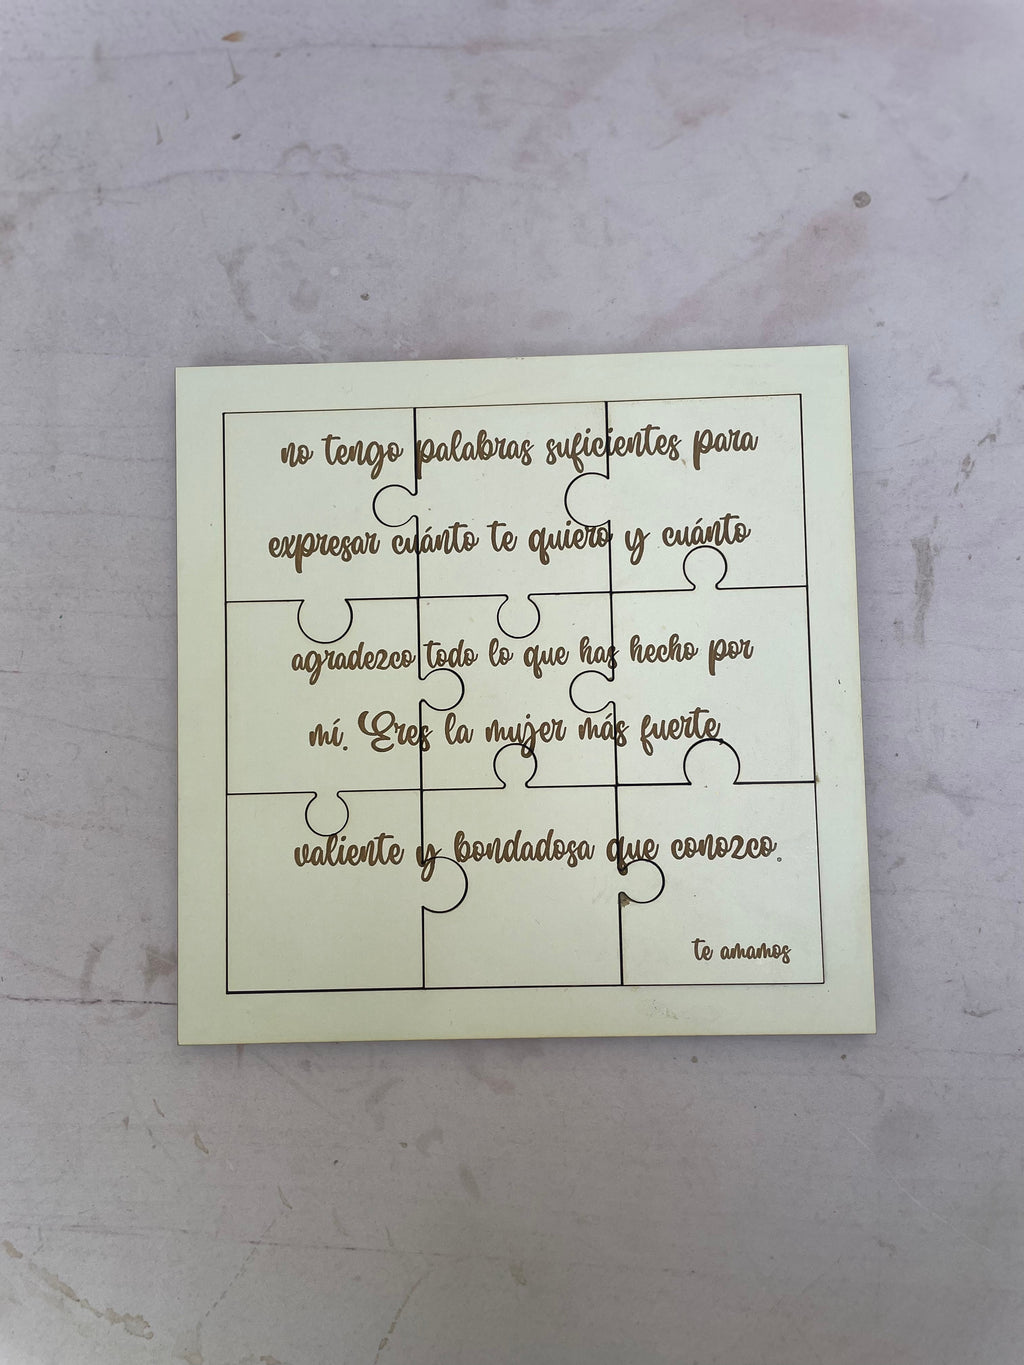 no tengo palabras suficientes para
expresar cuánto te quiero y cuánto
agradezco todo lo que has hecho por
mí. Eres la mujer más fuerte,
valiente y bondadosa que conozco.
te amamos